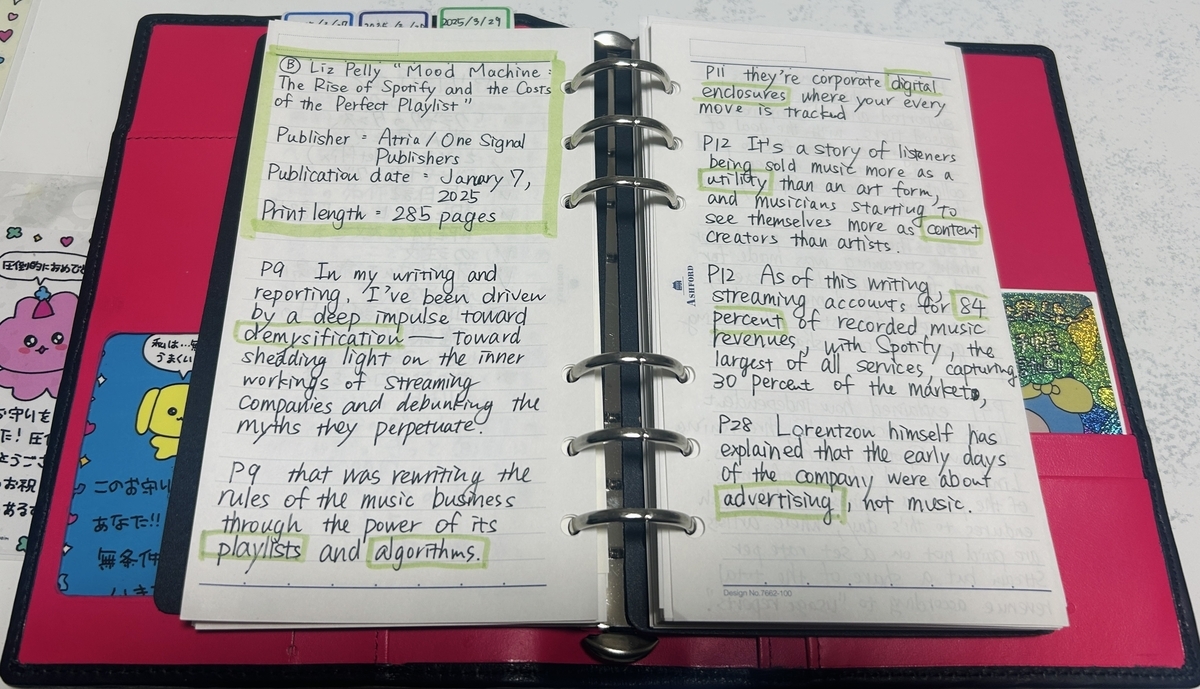 2025/3/29
Ⓑ Liz Pelly "Mood Machine :
The Rise of Spotify and the Costs
of the Perfect Playlist"
Publisher = Atria / One Signal
Publishers
Publication date = Janary 7,
2025
Print length = 285 pages
P9 In my writing and
reporting, I've been driven
by a deep impulse toward
demysification — toward
shedding light on the inner
workings of streaming
companies and debunking the
myths they perpetuate.
P9 that was rewriting the
rules of the music business
through the power of its
playlists and algorithms.
P11 they're corporate digital
enclosures where your every
move is tracked
P12 It's a story of listeners
being sold music more as a
utility than an art form,
and musicians starting to
see themselves more as content
creators than artists.
P12 As of this writing,
streaming accounts for 84
percent of recorded music
revenues, with Spotify, the
largest of all services, capturing
30 percent of the market,
P28 Lorentzon himself has
explained that the early days
of the company were about
advertising, not music.
ASHFORD
Design No.7662-100
圧倒的におめでと
私は…
うまくい
このお守り
あなた!!
無条件